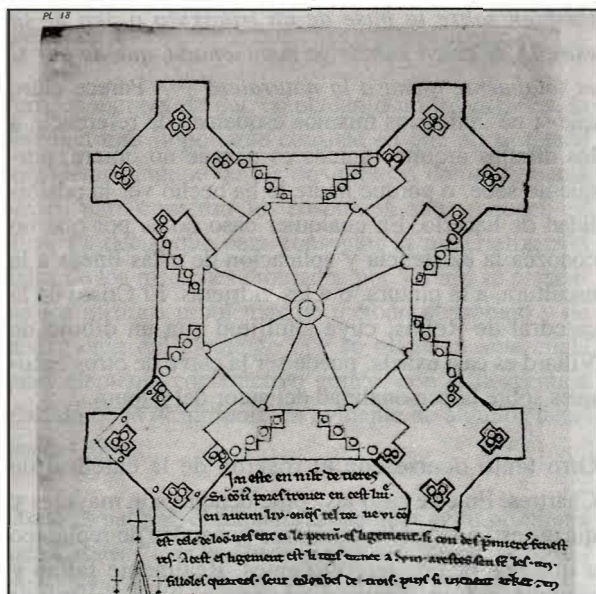 PL. 18
J'ai este en mlt de tieres
Si cõ võ pores trover en cest liv̄.
en aucun liv. onq̃s tel tor ne vi cõ
est cele de loõ. ves ent ci le premĩ. esligement. si con des p̃miere fenest
res. A cest esligement est li tors tornee a .viii. arestes sen st̃ les .iiii.
filloles quarees. seur colonbes de .trois. puis si vienent arket.